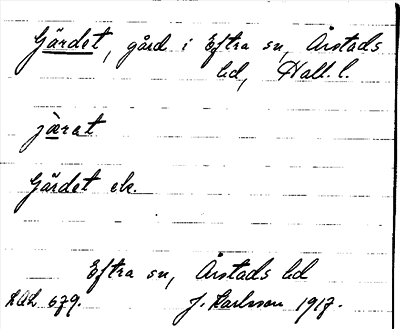 Gärdet, gård i Eftra sn, Årstads
hd, Hall. l.
jäͅrat
Gärdet ek.
Eftra sn, Årstads hd
LAL 679. J. Karlsson 1917.